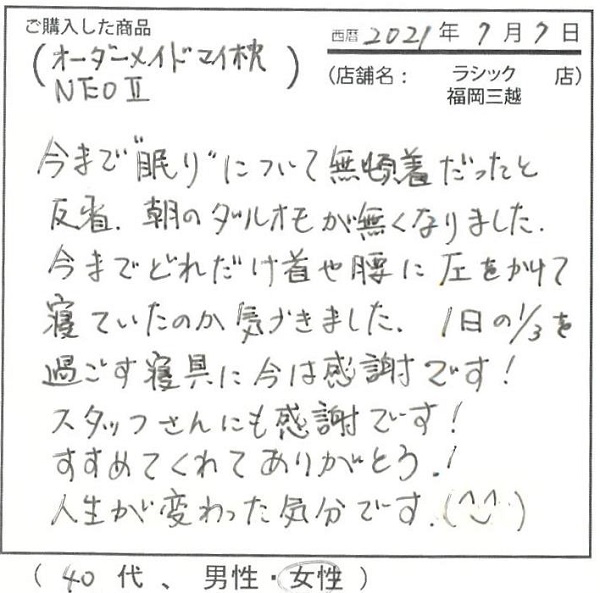 ご購入した商品
西暦 2021年 7月 7日
(オーダーメイドマイ枕
NEOⅡ)
(店舗名: ラシック
福岡三越 店)
今まで"眠り"について無頓着だったと
反省、朝のダルオモが無くなりました。
今までどれだけ首や腰に圧をかけて
寝ていたのか気づきました。1日の1/3を
過ごす寝具に今は感謝です!
スタッフさんにも感謝です!
すすめてくれてありがとう!
人生が変わった気分です。(^‿^)
(40代、男性・女性)